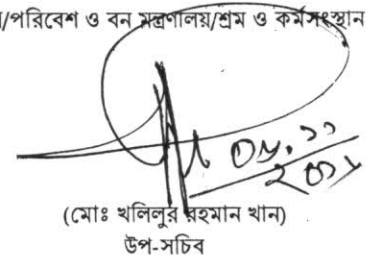 /পরিবেশ ও বন মন্ত্রণালয়/শ্রম ও কর্মসংস্থান
(মোঃ খলিলুর রহমান খান)
উপ-সচিব